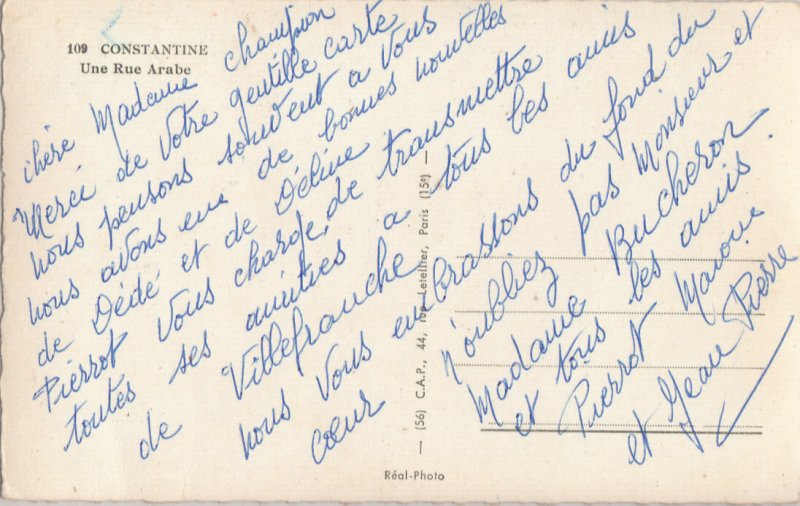 109 CONSTANTINE
Une Rue Arabe
chère Madame champion
Merci de votre gentille carte
nous pensons souvent a Vous
nous avons eu de bonnes nouvelles
de Dédé et de Déline
Pierrot Vous charge, de transmettre
toutes ses amitiés a tous les amis
de Villefranche
nous Vous embrassons du fond du
cœur N'oubliez pas Monsieur et
Madame Bucheron
et tous les amis.
Pierrot Manou
et Jean Pierre
(56) C.A.P., 44, rue Letellier, Paris (15e)
Réal-Photo